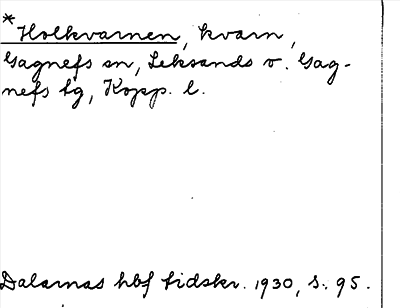 *Holkvarnen, kvarn,
Gagnefs sn, Leksands o. Gag-
nefs tg, Kopp. l.
Dalarnas hbf tidskr. 1930, s. 95.